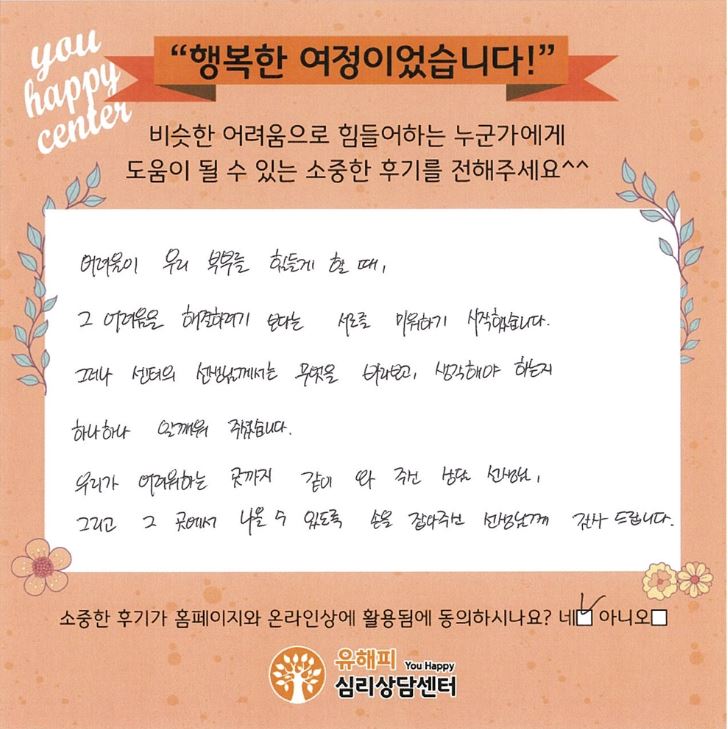 you
happy
center
“행복한 여정이었습니다!”
비슷한 어려움으로 힘들어하는 누군가에게
도움이 될 수 있는 소중한 후기를 전해주세요^^
어려움이 우리 부부를 힘들게 할 때,
그 어려움을 해결하려기 보다는 서로를 미워하기 시작했습니다.
그러나 센터의 선생님께서는 무엇을 바라보고, 생각해야 하는지
하나하나 일깨워 주셨습니다.
우리가 어려워하는 곳까지 같이 와 주신 상담 선생님,
그리고 그 곳에서 나올 수 있도록 손을 잡아주신 선생님께 감사 드립니다.
소중한 후기가 홈페이지와 온라인상에 활용됨에 동의하시나요? 네 아니오
유해피 You Happy
심리상담센터